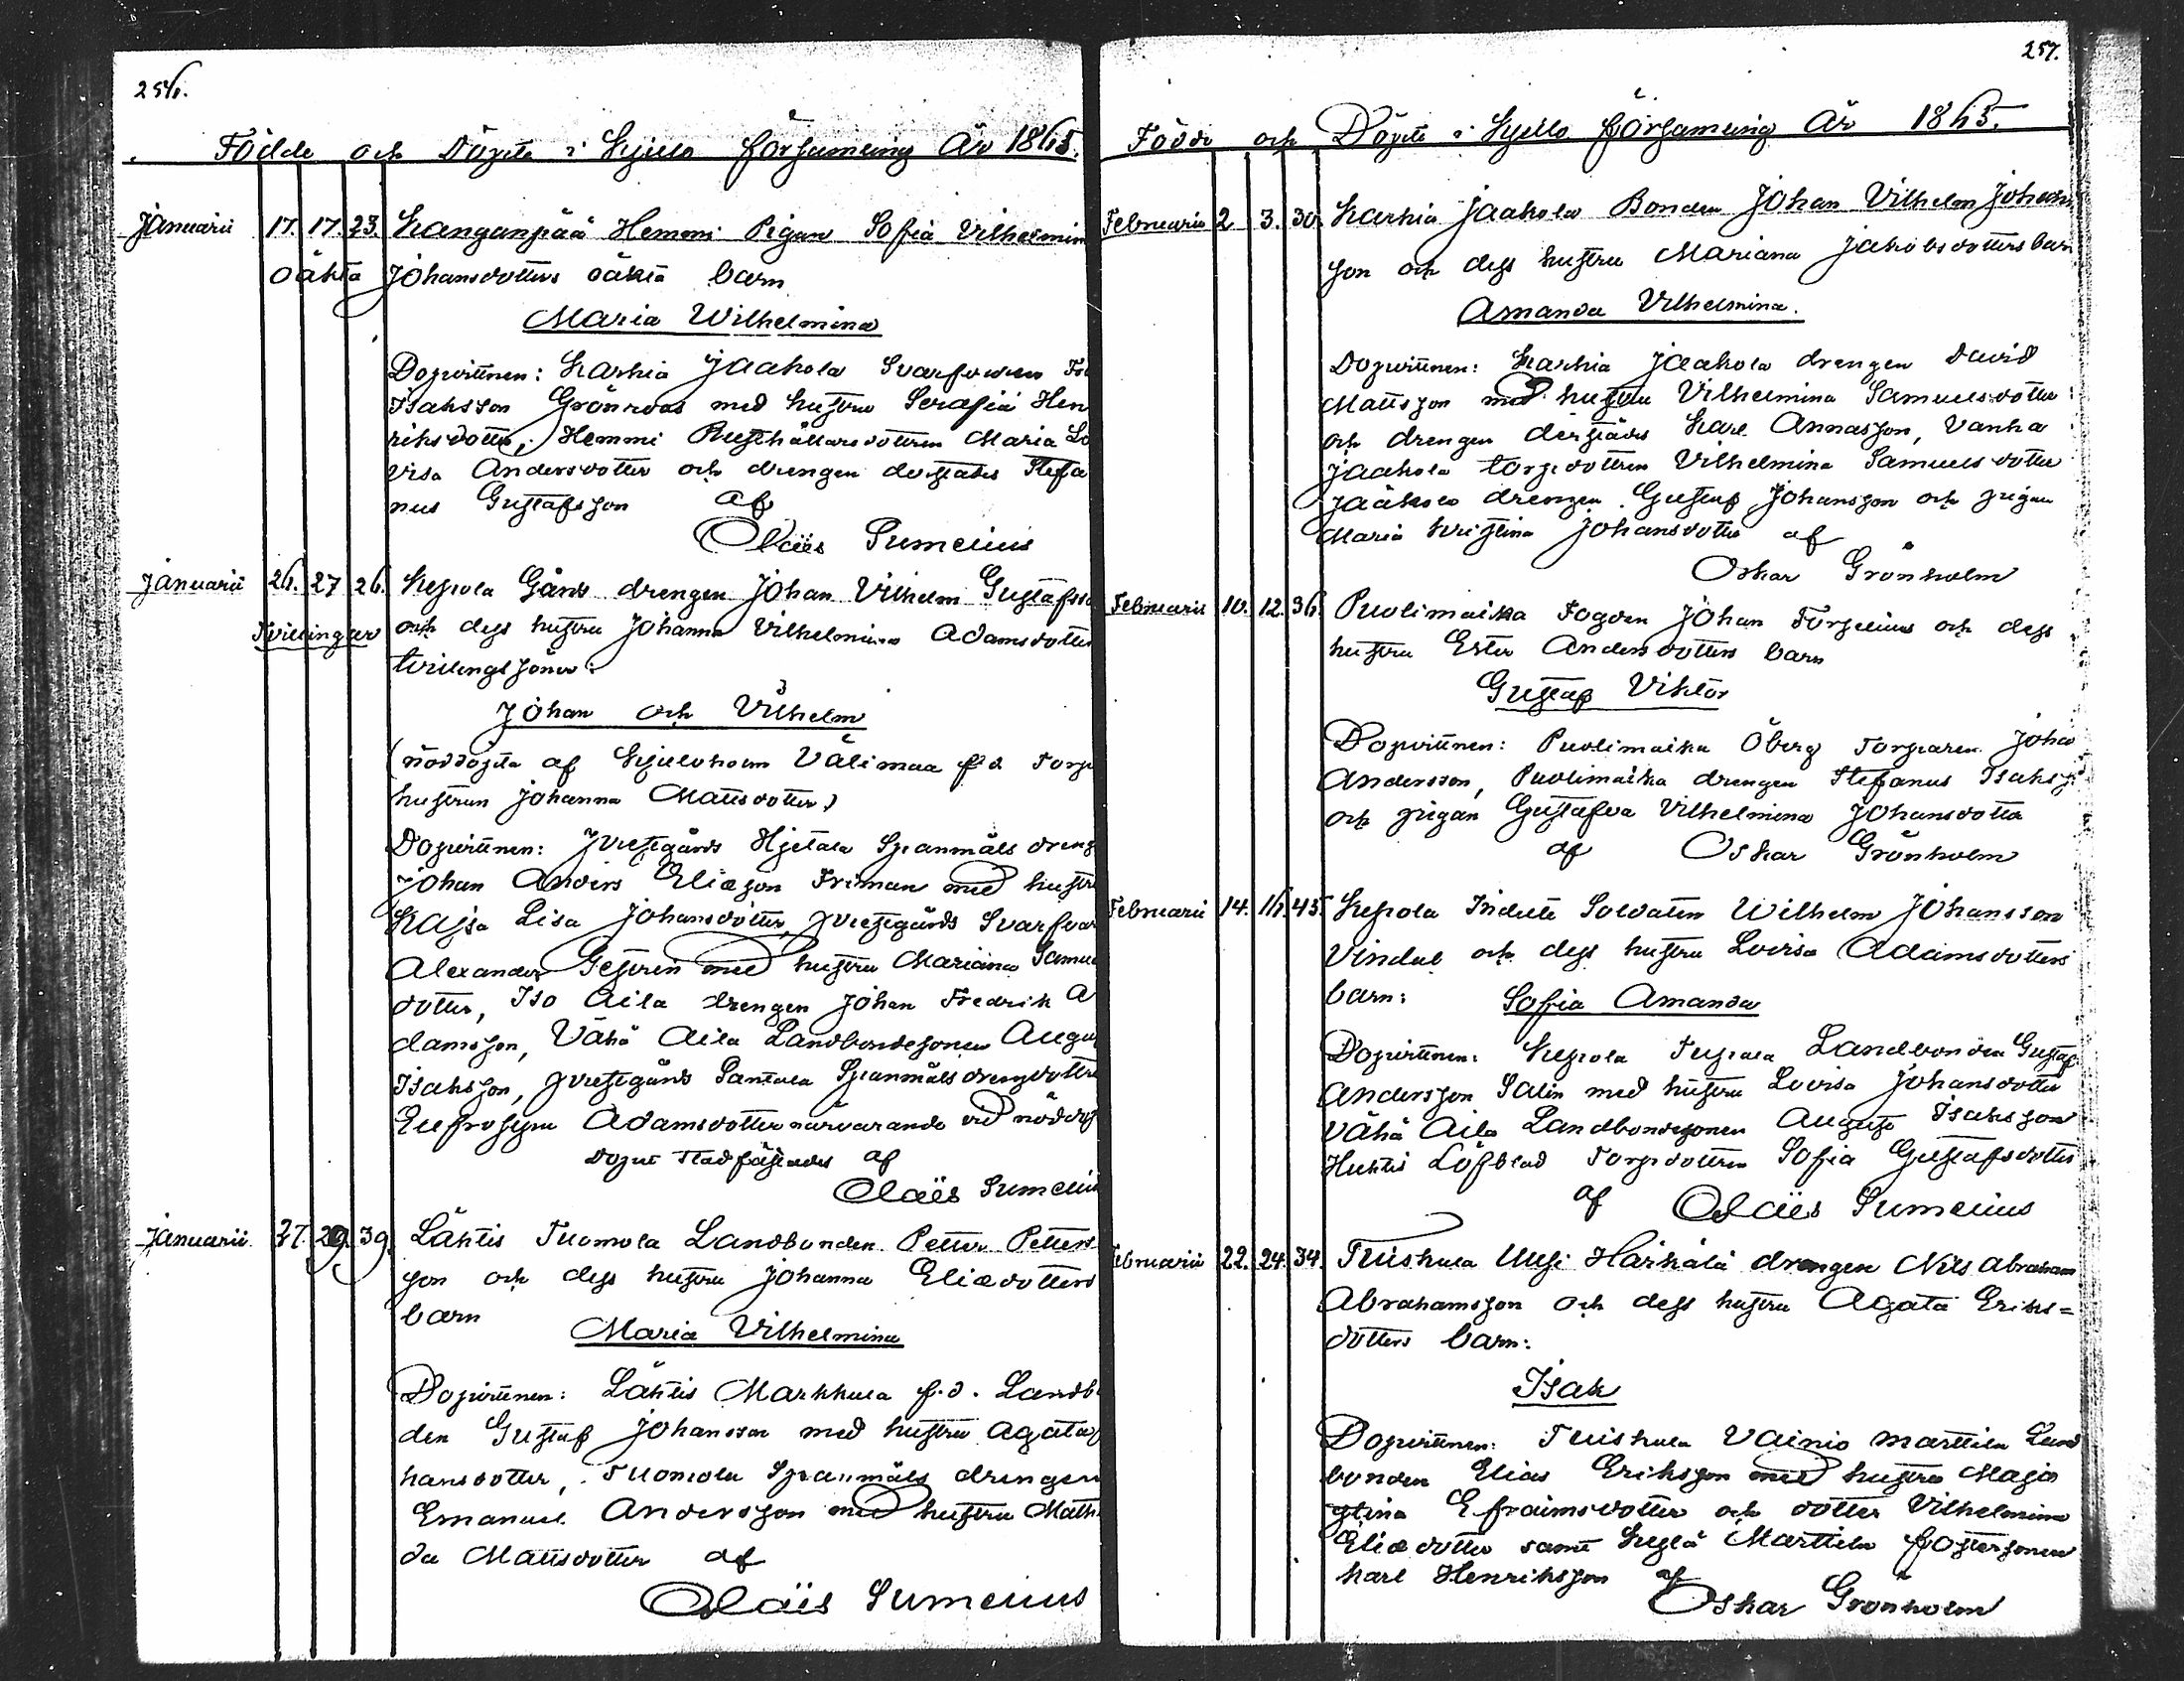 256.
Födde och Döpte i Kjulo församling År 1865.
Januarii 17. 17. 23. Kanganpää Hemmi Pigan Sofia Vilhelmin
oäkta Johansdotters oäkta barn
Maria Wilhelmina
Dopvittnen: Karhia Jaakola Svarfvaren
Isaksson Grönroos med hustru Serafia Hen
riksdotter, Hemmi Rusthållaredottren Maria Lo
visa Andersdotter och drengen derstädes Stefa
nus Gustafsson af
Olaüs Sumelius
Januarii 26. 27 26. Kepola Gårds drengen Johan Vilhelm Gustafsso
Tvillingar och dess hustru Johanna Vilhelmina Adamsdotters
tvilingssöner:
Johan och Vilhelm
(nöddöpta af Kjuloholm Välimaa f.d. Torp
hustrun Johanna Mattsdotter)
Dopvittnen: Hjetala Spanmåls dreng
Johan Anders Eliasson Friman med hustru
Kajsa Lisa Johansdotter, Svarfvar
Alexander med hustru Mariana Samue
dotter, Iso Aila drengen Johan Fredrik A
damsson, Vähä Aila Landbondesonen Augus
Isaksson, Santala Spanmåls drengdottre
Eufrosyne Adamsdotter närvarande vid nöddop
Dopet stadfästades af
Olaüs Sumelius
Januarii 27. 29. 39. Lähtis Tuomola Landbonden Petter Petters
son och dess hustru Johanna Eliædotters
barn
Maria Vilhelmina
Dopvittnen: Lähtis Markkula f.d. Landb
den Gustaf Johansson med hustru Agata
hansdotter, Tuomola Spanmåls drengen
Emanuel Andersson med hustru Math
da Mattsdotter af
Olaüs Sumelius
257.
Födde och Döpte i Kjulo församling År 1865.
Februarii 2 3. 30. Karhia Jaakola Bonden Johan Vilhelm Johans
son och dess hustru Mariana Jakobsdotters barn
Amanda Vilhelmina.
Dopvittnen: Karhia Jaakola drengen David
Mattsson med hustru Vilhelmina Samuelsdotter
och drengen derstädes Karl Annasson, Vanha
Jaakola torpdottren Vilhelmina Samuelsdotter
Jaakola drengen Gustaf Johansson och pigan
Maria Kristina Johansdotter af
Oskar Grönholm
Februarii 10. 12. 36. Puolimatka Fogden Johan Forselius och dess
hustru Ester Andersdotters barn
Gustaf Viktor
Dopvittnen: Puolimatka Öberg Torparen Johan
Andersson, Puolimatka drengen Stefanus Isakss
och pigan Gustafva Vilhelmina Johansdotter
af Oskar Grönholm
Februarii 14. 16. 45. Kepola Indelte Soldaten Wilhelm Johansson
Vindul och dess hustru Lovisa Adamsdotters
barn: Sofia Amanda
Dopvittnen: Kepola Landbonden Gustaf
Andersson Salin med hustru Lovisa Johansdotter
Vähä Aila Landbondesonen August Isaksson
Huhtis Löfblad Torpdottren Sofia Gustafsdotter
af Olaüs Sumelius
Februarii 22. 24. 34. Tuiskula Uusi Härkälä drengen Nils Abraham
Abrahamsson och dess hustru Agata Eriks=
dotters barn:
Isak
Dopvittnen: Tuiskula Vainio Marttila Land
bonden Elias Eriksson med hustru Maja
Stina Efraimsdotter och dotter Vilhelmina
Eliædotter samt Marttila fostersonen
Karl Henriksson af
Oskar Grönholm